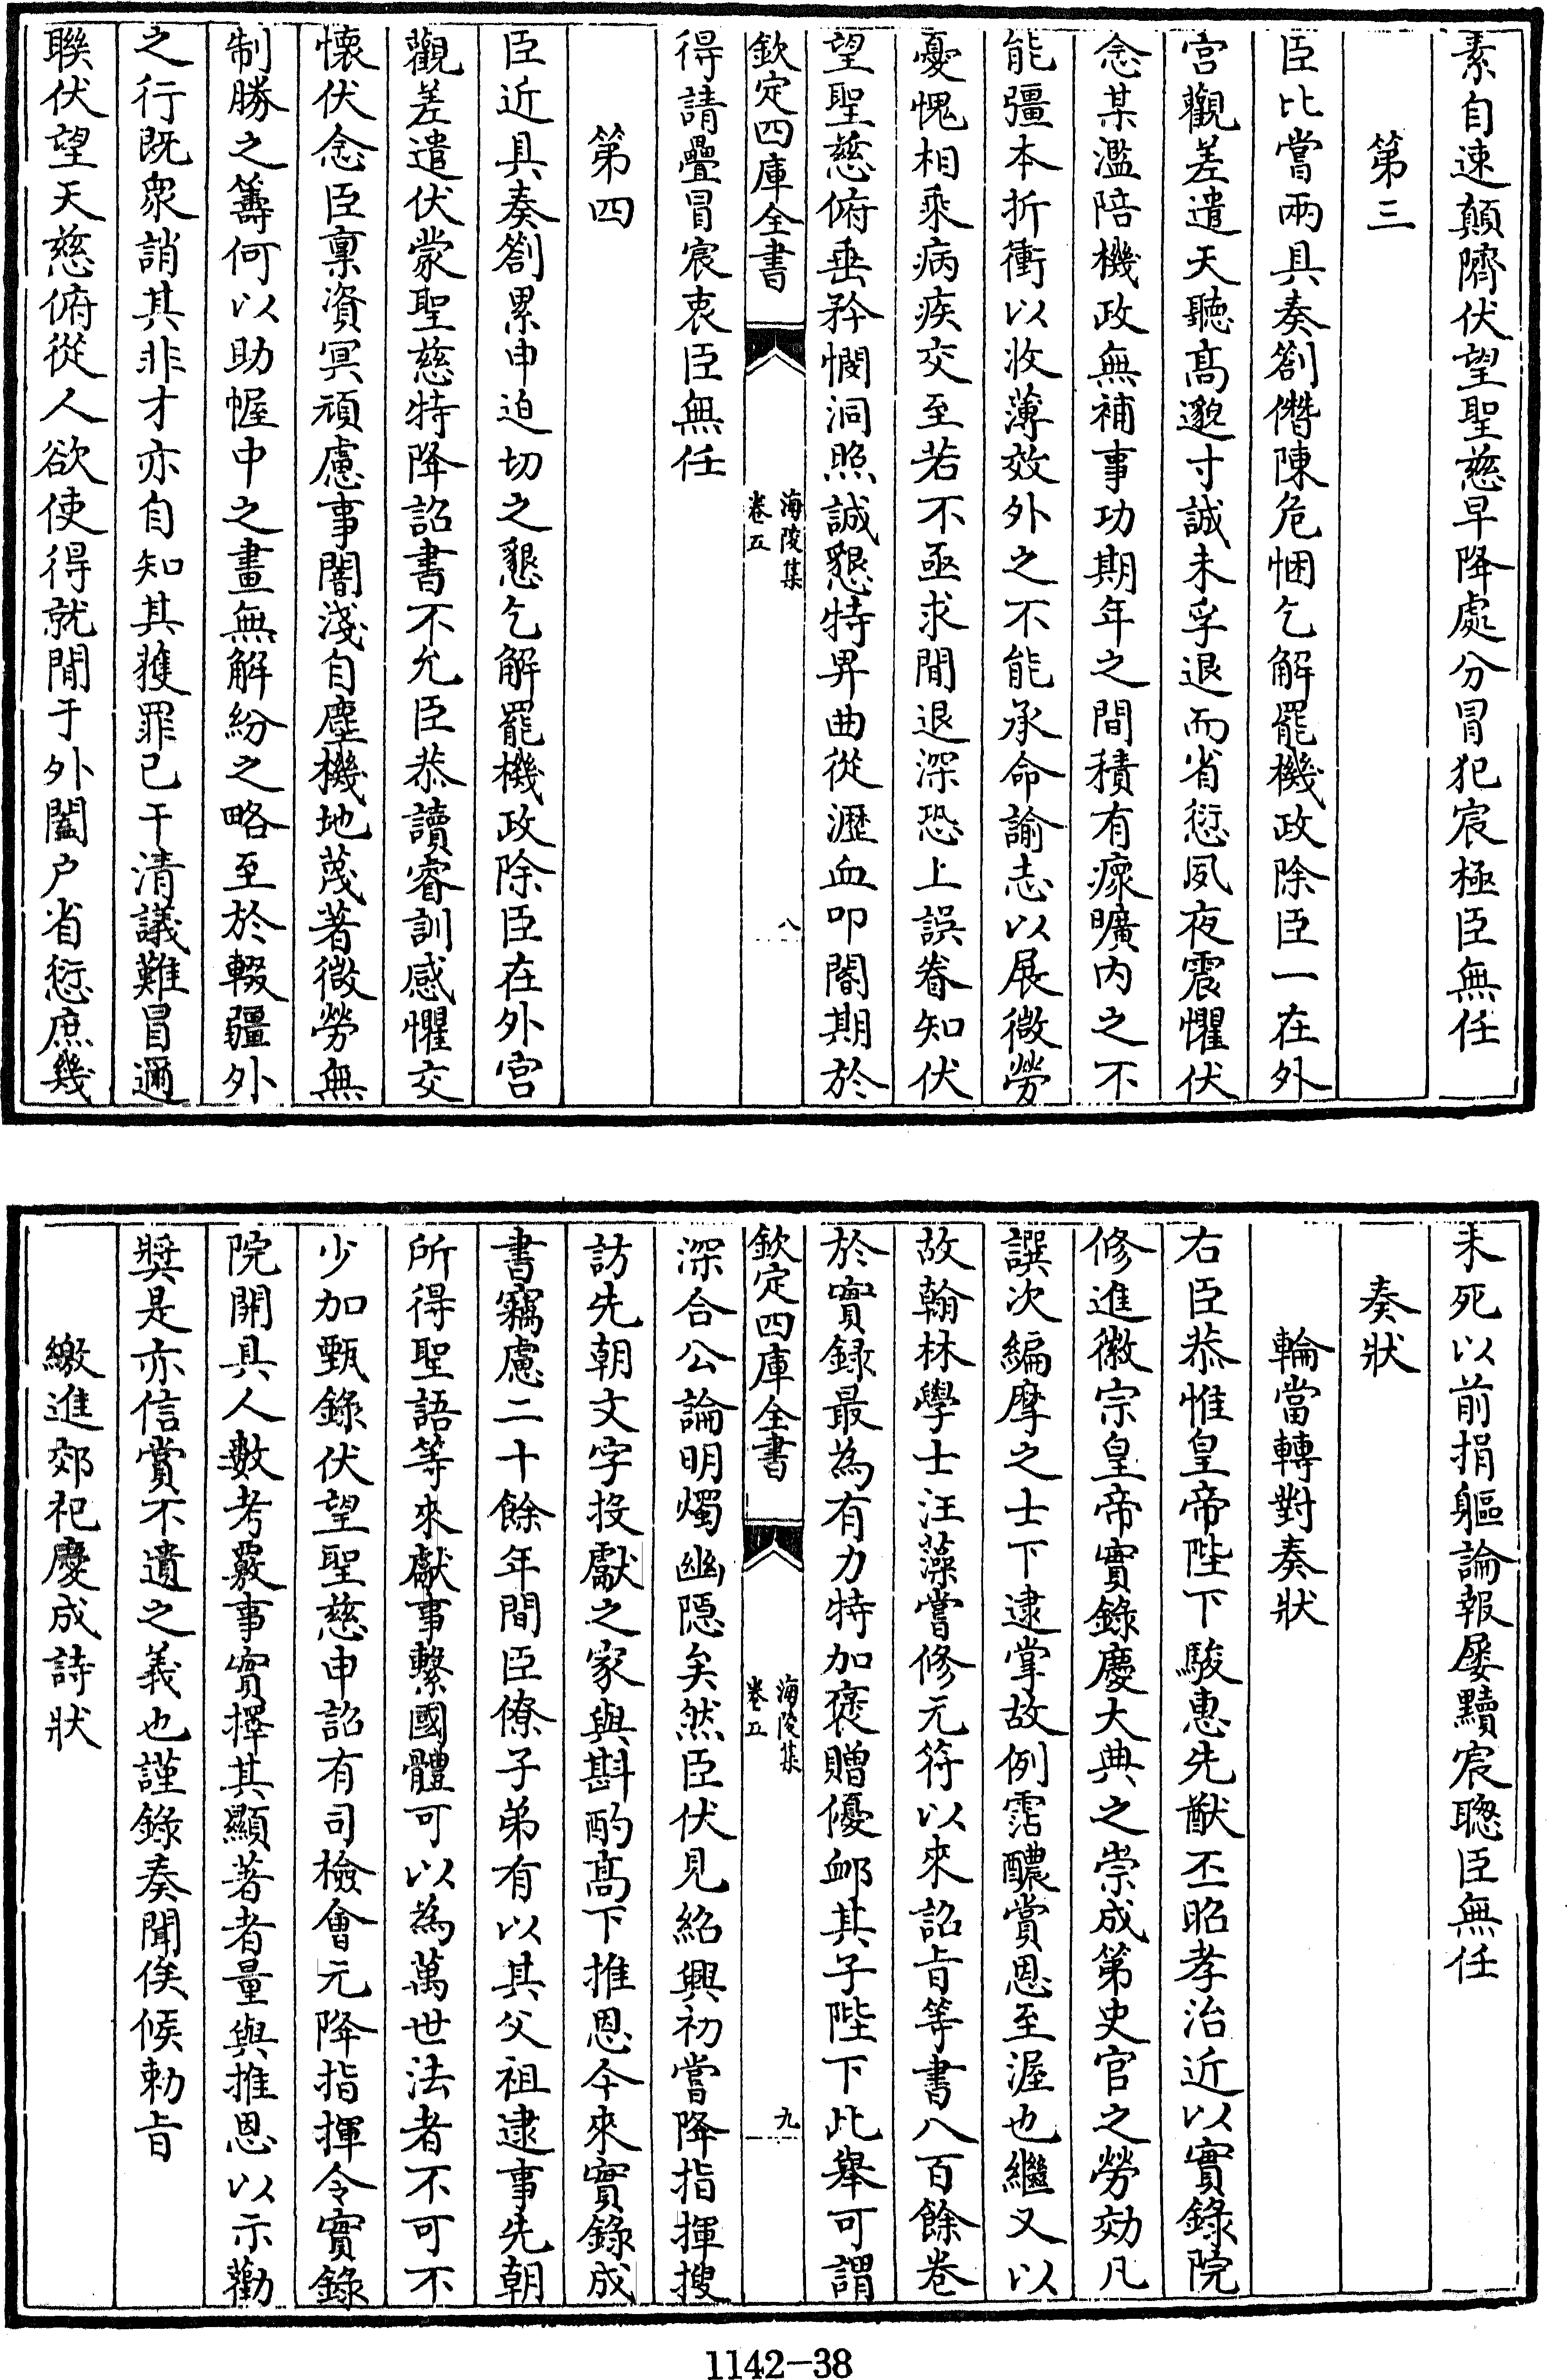 素自速顛隮伏望聖慈早降處分冒犯宸極臣無任
第三
臣比嘗兩具奏劄僭陳危悃乞解罷機政除臣一在外
宮觀差遣天聽髙邈寸誠未孚退而省愆夙夜震懼伏
念某濫陪機政無補事功期年之間積有瘝曠内之不
能彊本折衝以收薄效外之不能承命諭志以展微勞
憂愧相乘病疾交至若不亟求間退深恐上誤眷知伏
望聖慈俯垂矜憫洞照誠懇特畀曲從瀝血叩閽期於
欽定四庫全書
海陵集
卷五
八
得請疊冒宸衷臣無任
第四
臣近具奏劄累申迫切之懇乞解罷機政除臣在外宮
觀差遣伏蒙聖慈特降詔書不允臣恭讀睿訓感懼交
懐伏念臣稟資冥頑慮事闇淺自塵機地蔑著微勞無
制勝之籌何以助幄中之畫無解紛之略至於輟疆外
之行既衆誚其非才亦自知其獲罪已干清議難冒邇
聯伏望天慈俯從人欲使得就閒于外闔户省愆庶幾
未死以前捐軀論報屡黷宸聰臣無任
奏狀
輪當轉對奏狀
右臣恭惟皇帝陛下駿惠先猷丕昭孝治近以實錄院
修進徽宗皇帝實錄慶大典之崇成第史官之勞効凡
譔次編摩之士下逮掌故例霑醲賞恩至渥也繼又以
故翰林學士汪藻嘗修元符以來詔旨等書八百餘卷
於實録最為有力特加褒贈優䘏其子陛下此舉可謂
欽定四庫全書
海陵集
卷五
九
深合公論明燭幽隠矣然臣伏見紹興初嘗降指揮搜
訪先朝文字投獻之家與斟酌髙下推恩今來實錄成
書竊慮二十餘年間臣僚子弟有以其父祖逮事先朝
所得聖語等來獻事繫國體可以為萬世法者不可不
少加甄錄伏望聖慈申詔有司檢會元降指揮令實錄
院開具人數考覈事實擇其顯著者量與推恩以示勸
奬是亦信賞不遺之義也謹錄奏聞俟候勅旨
繳進郊祀慶成詩狀
1142-38